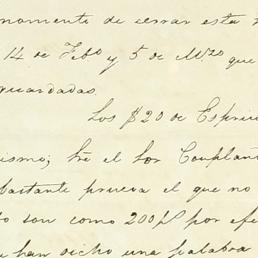 momento de cerrar esta
14 de Feb° y 5 de M.zo que
guardadas.
Los $20 de Espriu
ismo; tre el Sor Couplan
bastante prueva el que no
to son como 200 p$ por efe
y han dicho una palabra